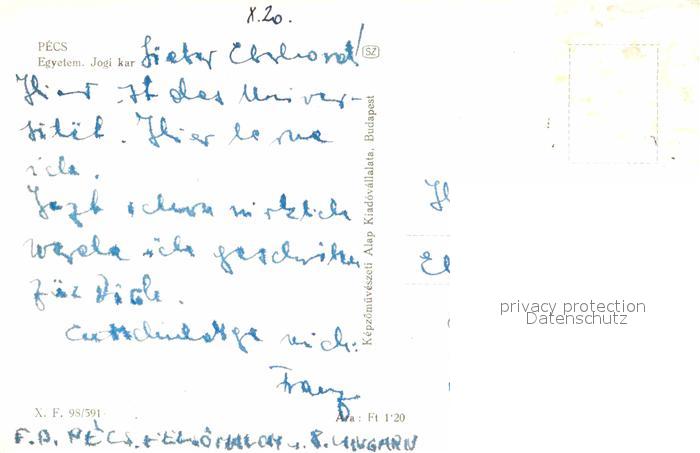 X.20.
PÉCS
Egyetem. Jogi kar
Lieber Eberhard!
SZ
Hier ist das Univer-
sität. Hier lerne
ich.
Jezt schon wirklich
werde ich geschriben
für Dich.
Entschuldige mich:
Franz
Képzőművészeti Alap Kiadóvállalata, Budapest
privacy protection
Datenschutz
X. F. 98/591
Ára : Ft 1·20
F.B. PÉCS. U. 8. UNGARN